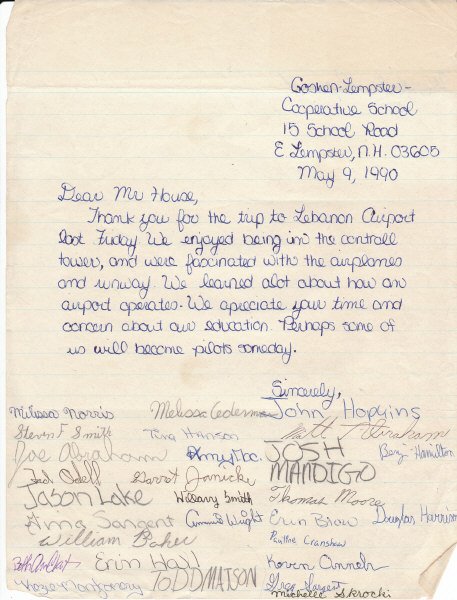 Goshen-Lempster-
Cooperative School
15 School Road
E Lempster, N.H. 03605
May 9, 1990
Dear Mr House,
Thank you for the trip to Lebanon Airport
last Friday. We enjoyed being in the controll
tower, and were fascinated with the airplanes
and runway. We learned alot about how an
airport operates. We apreciate your time and
concern about our education. Perhaps some of
us will become pilots someday.
Sincerely,
Melissa Norris Melissa John Hopkins
Steven F Smith Tina Hanson Matt Abraham
Joe Abraham Amy JOSH Benj Hamilton
Jad Odell Garrot Janicki MANDIGO
Jason Lake Hillary Smith Thomas Moore
Anna Sargent Wight Erin Blow Douglas Harrison
William Baker Pauline Cranshaw
Erin Hall Karen
Montgomery TODD MATSON Greg Sargent
Michelle Skrocki